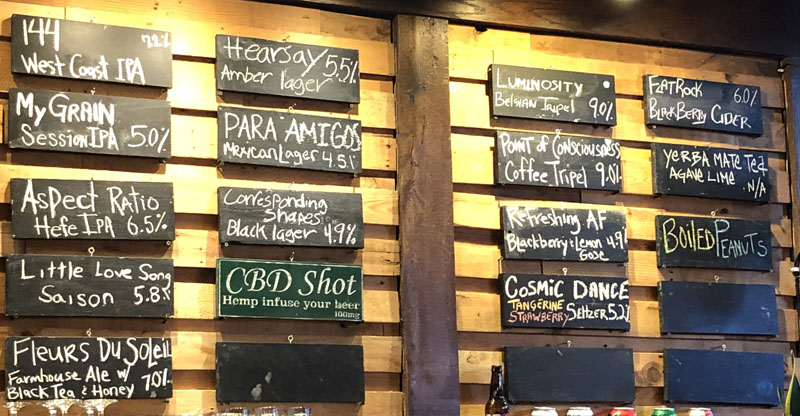 144
7.2%
West Coast IPA
My Grain
Session IPA 5.0%
Aspect Ratio
Hefe IPA 6.5%
Little Love Song
Saison 5.8%
Fleurs Du Soleil
Farmhouse Ale w/
Black Tea & Honey 7.0%
Hearsay 5.5%
Amber lager
PARA AMIGOS
Mexican Lager 4.5%
Corresponding
Shapes
Black lager 4.9%
CBD Shot
Hemp infuse your beer
100mg
Luminosity
Belgian Tripel 9.0%
Point of Consciousness
Coffee Tripel 9.0%
Refreshing AF
Blackberry & Lemon 4.9%
Gose
Cosmic DANCE
TANGERINE
STRAWBERRY SELTZER 5.2%
FLAT ROCK 6.0%
BLACKBERRY CIDER
YERBA MATE TEA
AGAVE LIME . N/A
BOILED PEANUTS